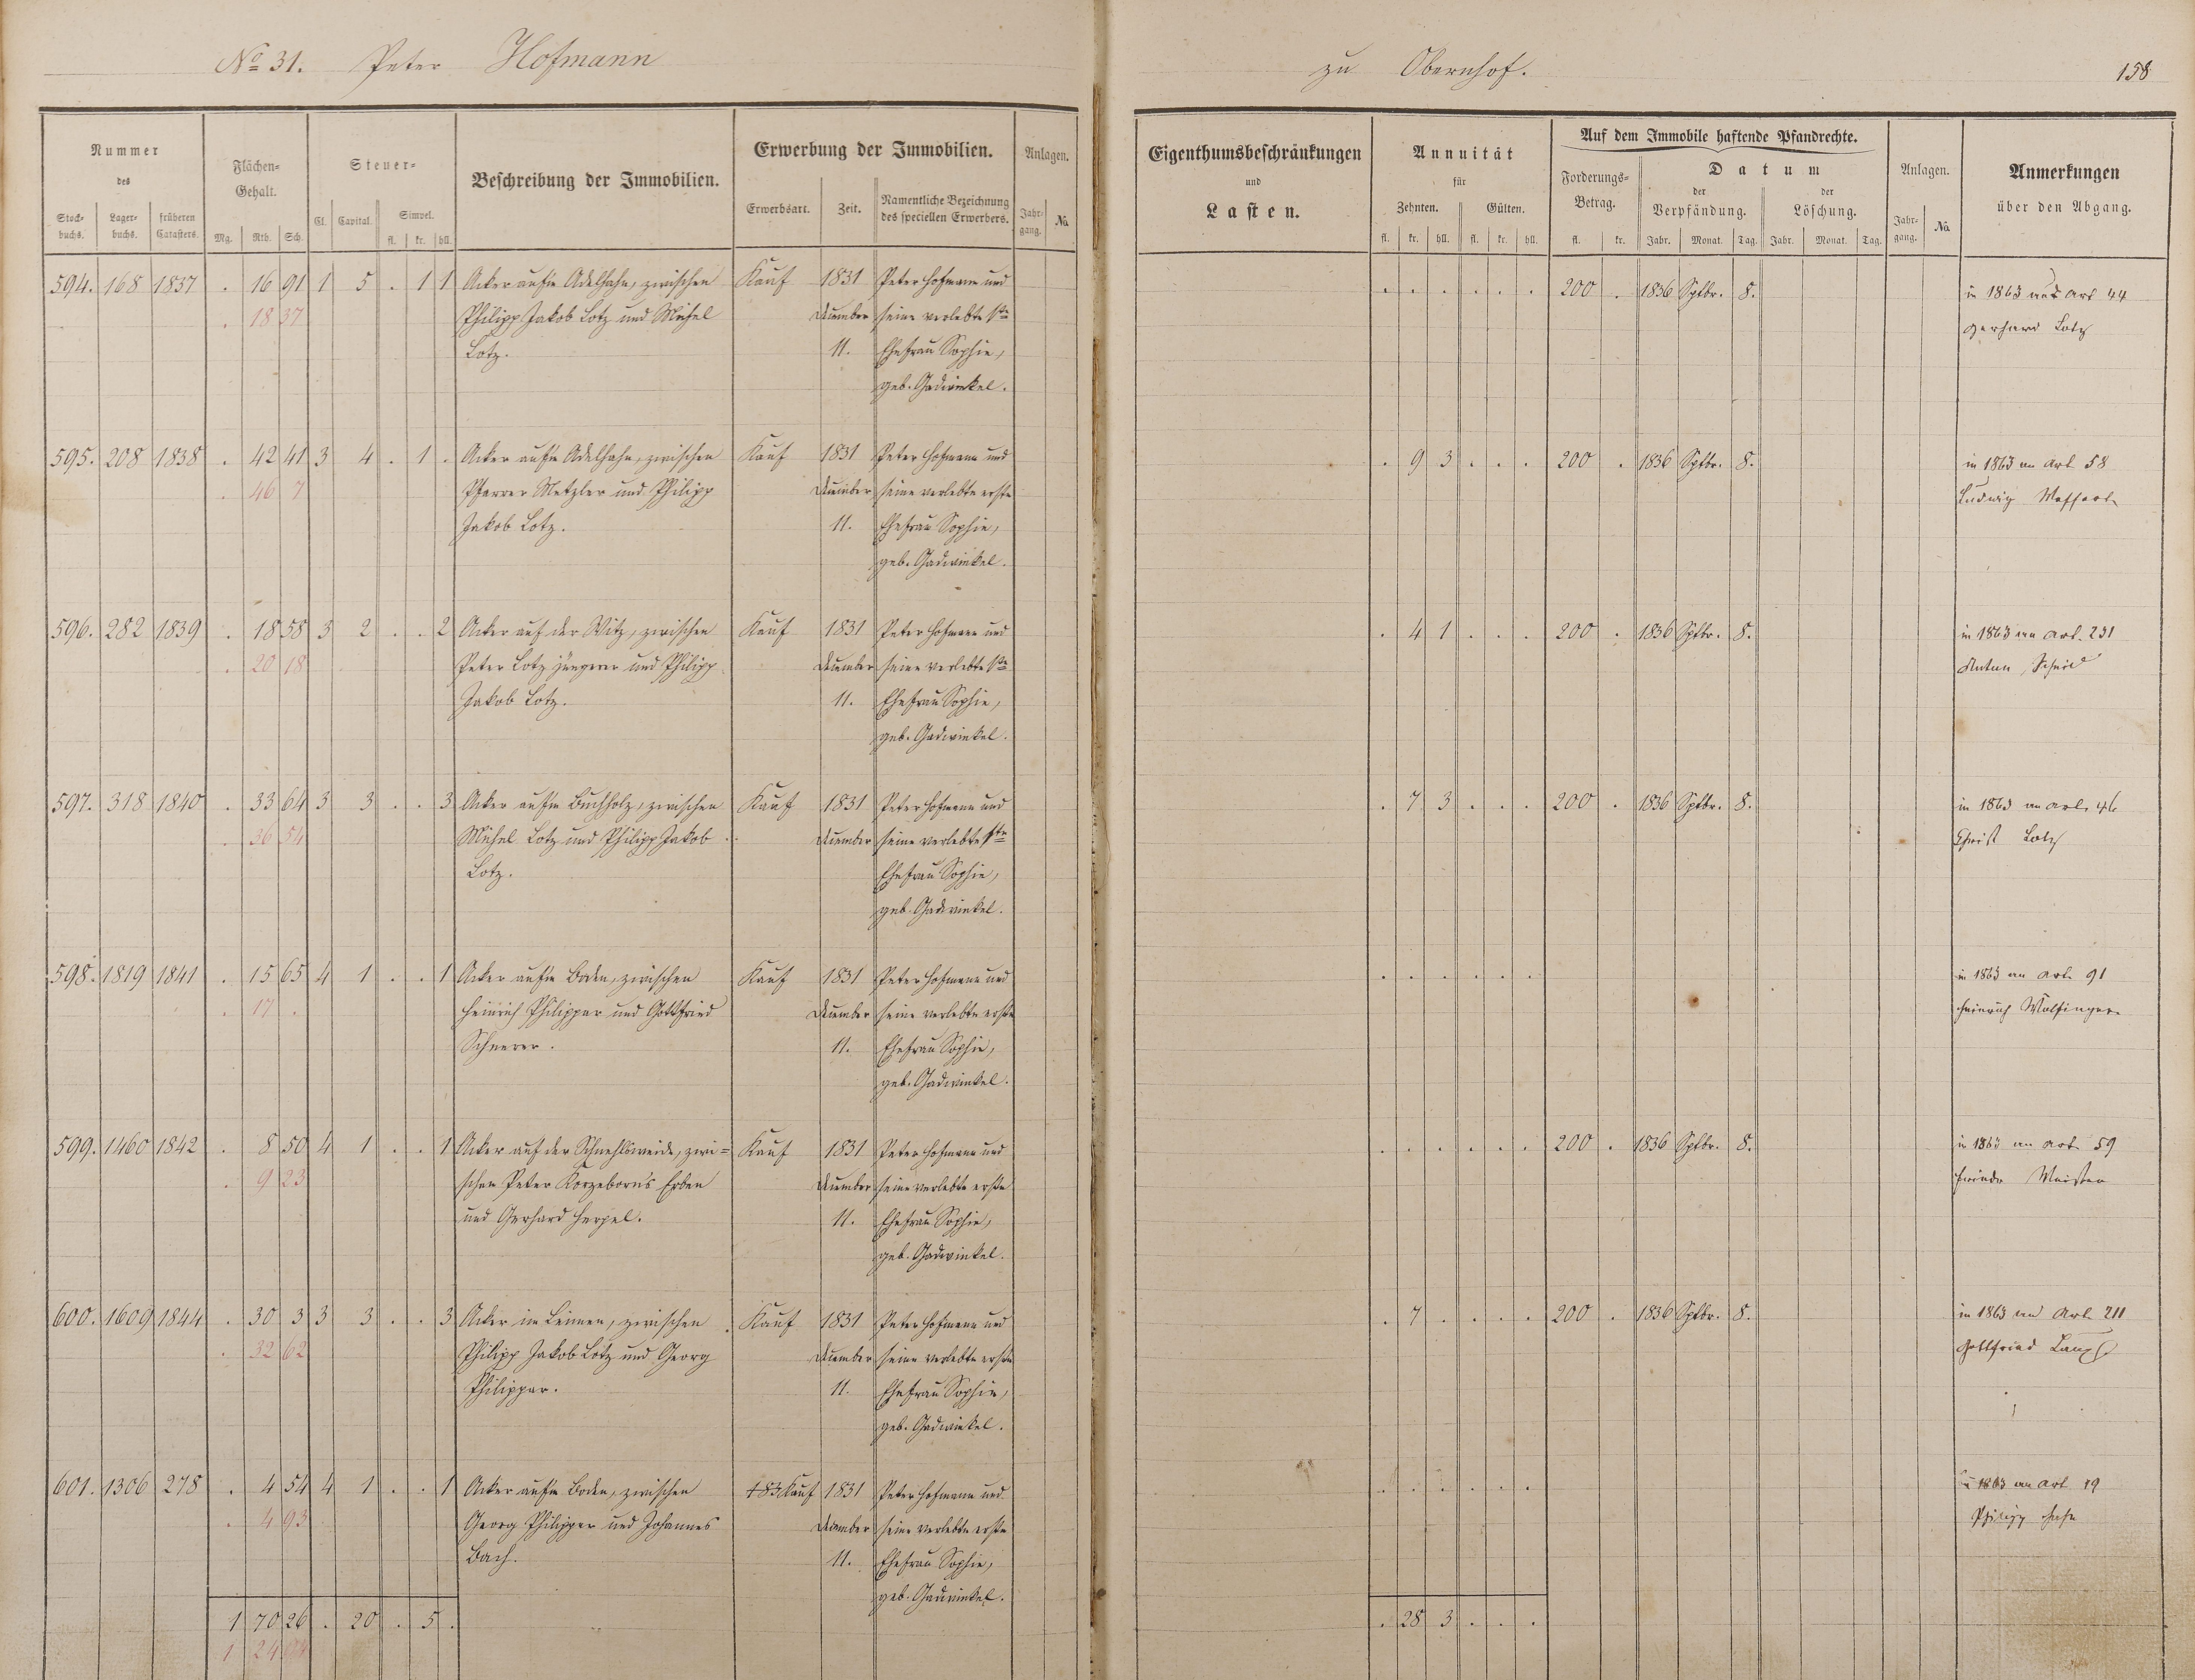 No 31. Peter Hofmann
zu Obernhof.
158
Nummer des
Stockbuchs. Lagerbuchs. früheren Catasters.
Flächen-Gehalt.
Mg. Rth. Sch.
Steuer-
Cl. Capital. Simpel.
fl. kr. hll.
Beschreibung der Immobilien.
Erwerbung der Immobilien.
Erwerbsart. Zeit. Namentliche Bezeichnung des speciellen Erwerbers.
Anlagen.
Jahrgang. No.
Eigenthumsbeschränkungen und Lasten.
Annuität für
Zehnten. Gülten.
fl. kr. hll. fl. kr. hll.
Auf dem Immobile haftende Pfandrechte.
Forderungs-Betrag.
fl. kr.
Datum
der Verpfändung. der Löschung.
Jahr. Monat. Tag. Jahr. Monat. Tag.
Anlagen.
Jahrgang. No.
Anmerkungen über den Abgang.
594. 168 1837 . 16 91 1 5 . 1 1 Acker auf'm Adelhahn, zwischen Kauf 1831 Peter Hofmann und
. 18 37 Philipp Jakob Lotz und Michel December seine verlebte 1te
Lotz. 11. Ehefrau Sophie,
geb. Gadwinkel.
. . . . . . 200 . 1836 Sptbr. 8. in 1863 an Art 44
Gerhard Lotz
595. 208 1838 . 42 41 3 4 . 1 . Acker auf'm Adelhahn, zwischen Kauf 1831 Peter Hofmann und
. 46 7 Pfarrer Metzler und Philipp December seine verlebte erste
Jakob Lotz. 11. Ehefrau Sophie,
geb. Gadwinkel.
. 9 3 . . . 200 . 1836 Sptbr. 8. in 1863 an Art 58
Ludwig
596. 282 1839 . 18 58 3 2 . . 2 Acker auf der Witz, zwischen Kauf 1831 Peter Hofmann und
. 20 18 Peter Lotz jüngerer und Philipp December seine verlebte 1te
Jakob Lotz. 11. Ehefrau Sophie,
geb. Gadwinkel.
. 4 1 . . . 200 . 1836 Sptbr. 8. in 1863 an Art. 231
Anton Scheid
597. 318 1840 . 33 64 3 3 . . 3 Acker auf'm Buchholz, zwischen Kauf 1831 Peter Hofmann und
. 36 54 Michel Lotz und Philipp Jakob December seine verlebte 1te
Lotz. Ehefrau Sophie,
geb. Gadwinkel.
. 7 3 . . . 200 . 1836 Sptbr. 8. in 1863 an Art. 46
Christ Lotz
598. 1819 1841 . 15 65 4 1 . . 1 Acker auf'm Boden, zwischen Kauf 1831 Peter Hofmann und
. 17 . Heinrich Philippar und Gottfried December seine verlebte erste
Scherer. 11. Ehefrau Sophie,
geb. Gadwinkel.
. . . . . . in 1863 an Art. 91
Heinrich Wolfinger
599. 1460 1842 . 8 50 4 1 . . 1 Acker auf der Schnehlsweide, zwi= Kauf 1831 Peter Hofmann und
. 9 23 schen Peter Korzeborn's Erben December seine verlebte erste
und Gerhard Herpel. 11. Ehefrau Sophie,
geb. Gadwinkel.
. . . . . . 200 . 1836 Sptbr. 8. in 1863 an Art 59
600. 1609 1844 . 30 3 3 3 . . 3 Acker im Leimen, zwischen Kauf 1831 Peter Hofmann und
. 32 62 Philipp Jakob Lotz und Georg December seine verlebte erste
Philippar. 11. Ehefrau Sophie,
geb. Gadwinkel.
. 7 . . . . 200 . 1836 Sptbr. 8. in 1863 an Art. 211
Gottfried
601. 1306 278 . 4 54 4 1 . . 1 Acker auf'm Boden, zwischen Kauf 1831 Peter Hofmann und
. 4 93 Georg Philippar und Johannes December seine verlebte erste
Bach. 11. Ehefrau Sophie,
geb. Gadwinkel.
. . . . . . in 1863 an Art 19
Philipp
1 70 26 . 20 . 5 .
1 24
. 28 3 . . .